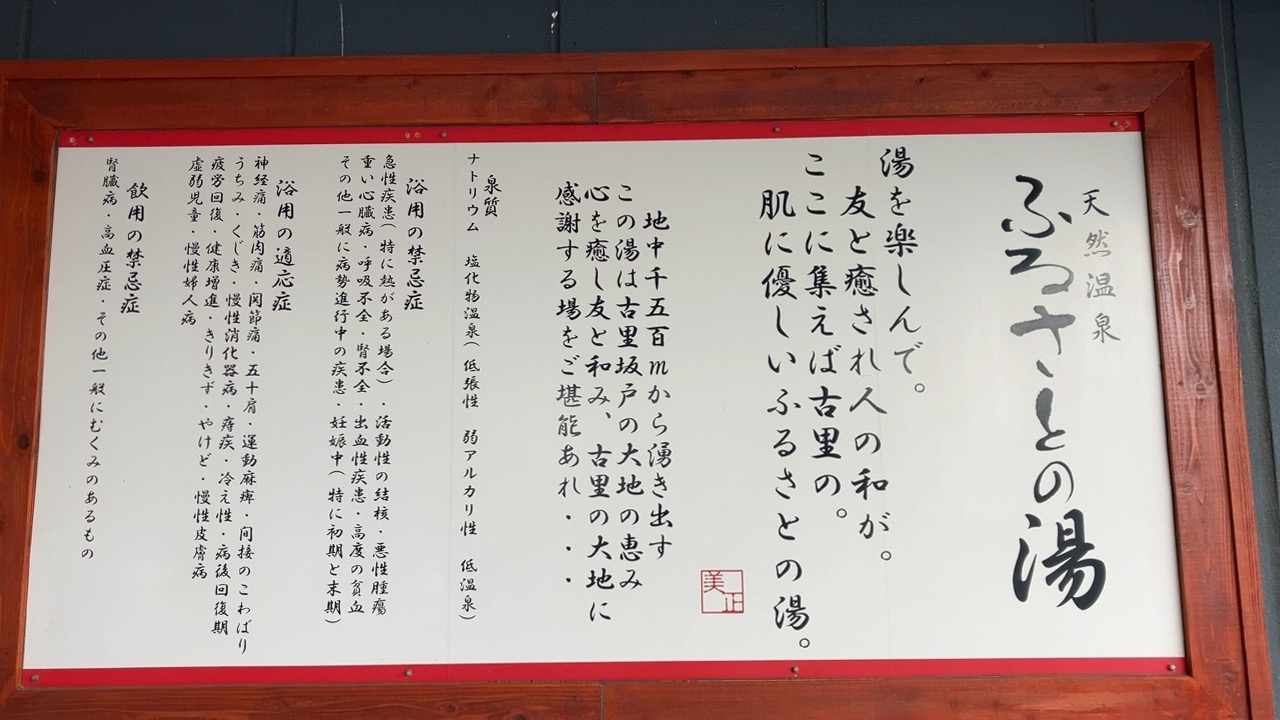 天然温泉
ふるさとの湯
湯を楽しんで。
友と癒され人の和が。
ここに集えば古里の。
肌に優しいふるさとの湯。
美正
地中千五百mから湧き出す
この湯は古里坂戸の大地の恵み
心を癒し友と和み、古里の大地に
感謝する場をご堪能あれ・・・
泉質
ナトリウム 塩化物温泉(低張性 弱アルカリ性 低温泉)
浴用の禁忌症
急性疾患(特に熱がある場合)・活動性の結核・悪性腫瘍
重い心臓病・呼吸不全・腎不全・出血性疾患・高度の貧血
その他一般に病勢進行中の疾患・妊娠中(特に初期と末期)
浴用の適応症
神経痛・筋肉痛・関節痛・五十肩・運動麻痺・間接のこわばり
うちみ・くじき・慢性消化器病・痔疾・冷え性・病後回復期
疲労回復・健康増進・きりきず・やけど・慢性皮膚病
虚弱児童・慢性婦人病
飲用の禁忌症
腎臓病・高血圧症・その他一般にむくみのあるもの